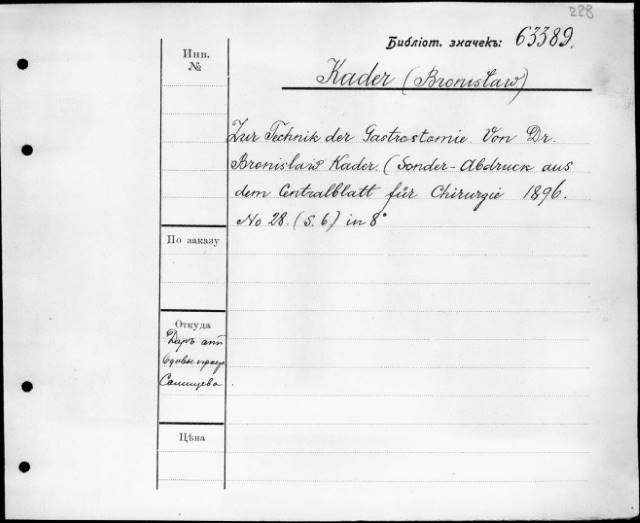 228
Библіот. значекъ: 63389.
Инв.
№
Kader (Bronisław)
Zur Technik der Gastrostomie. Von Dr.
Bronislaw Kader. (Sonder-Abdruck aus
dem Centralblatt für Chirurgie 1896.
No 28. (S. 6) in 8°
По заказу
Откуда
Даръ отъ
вдовы проф.
Салищева
Цѣна